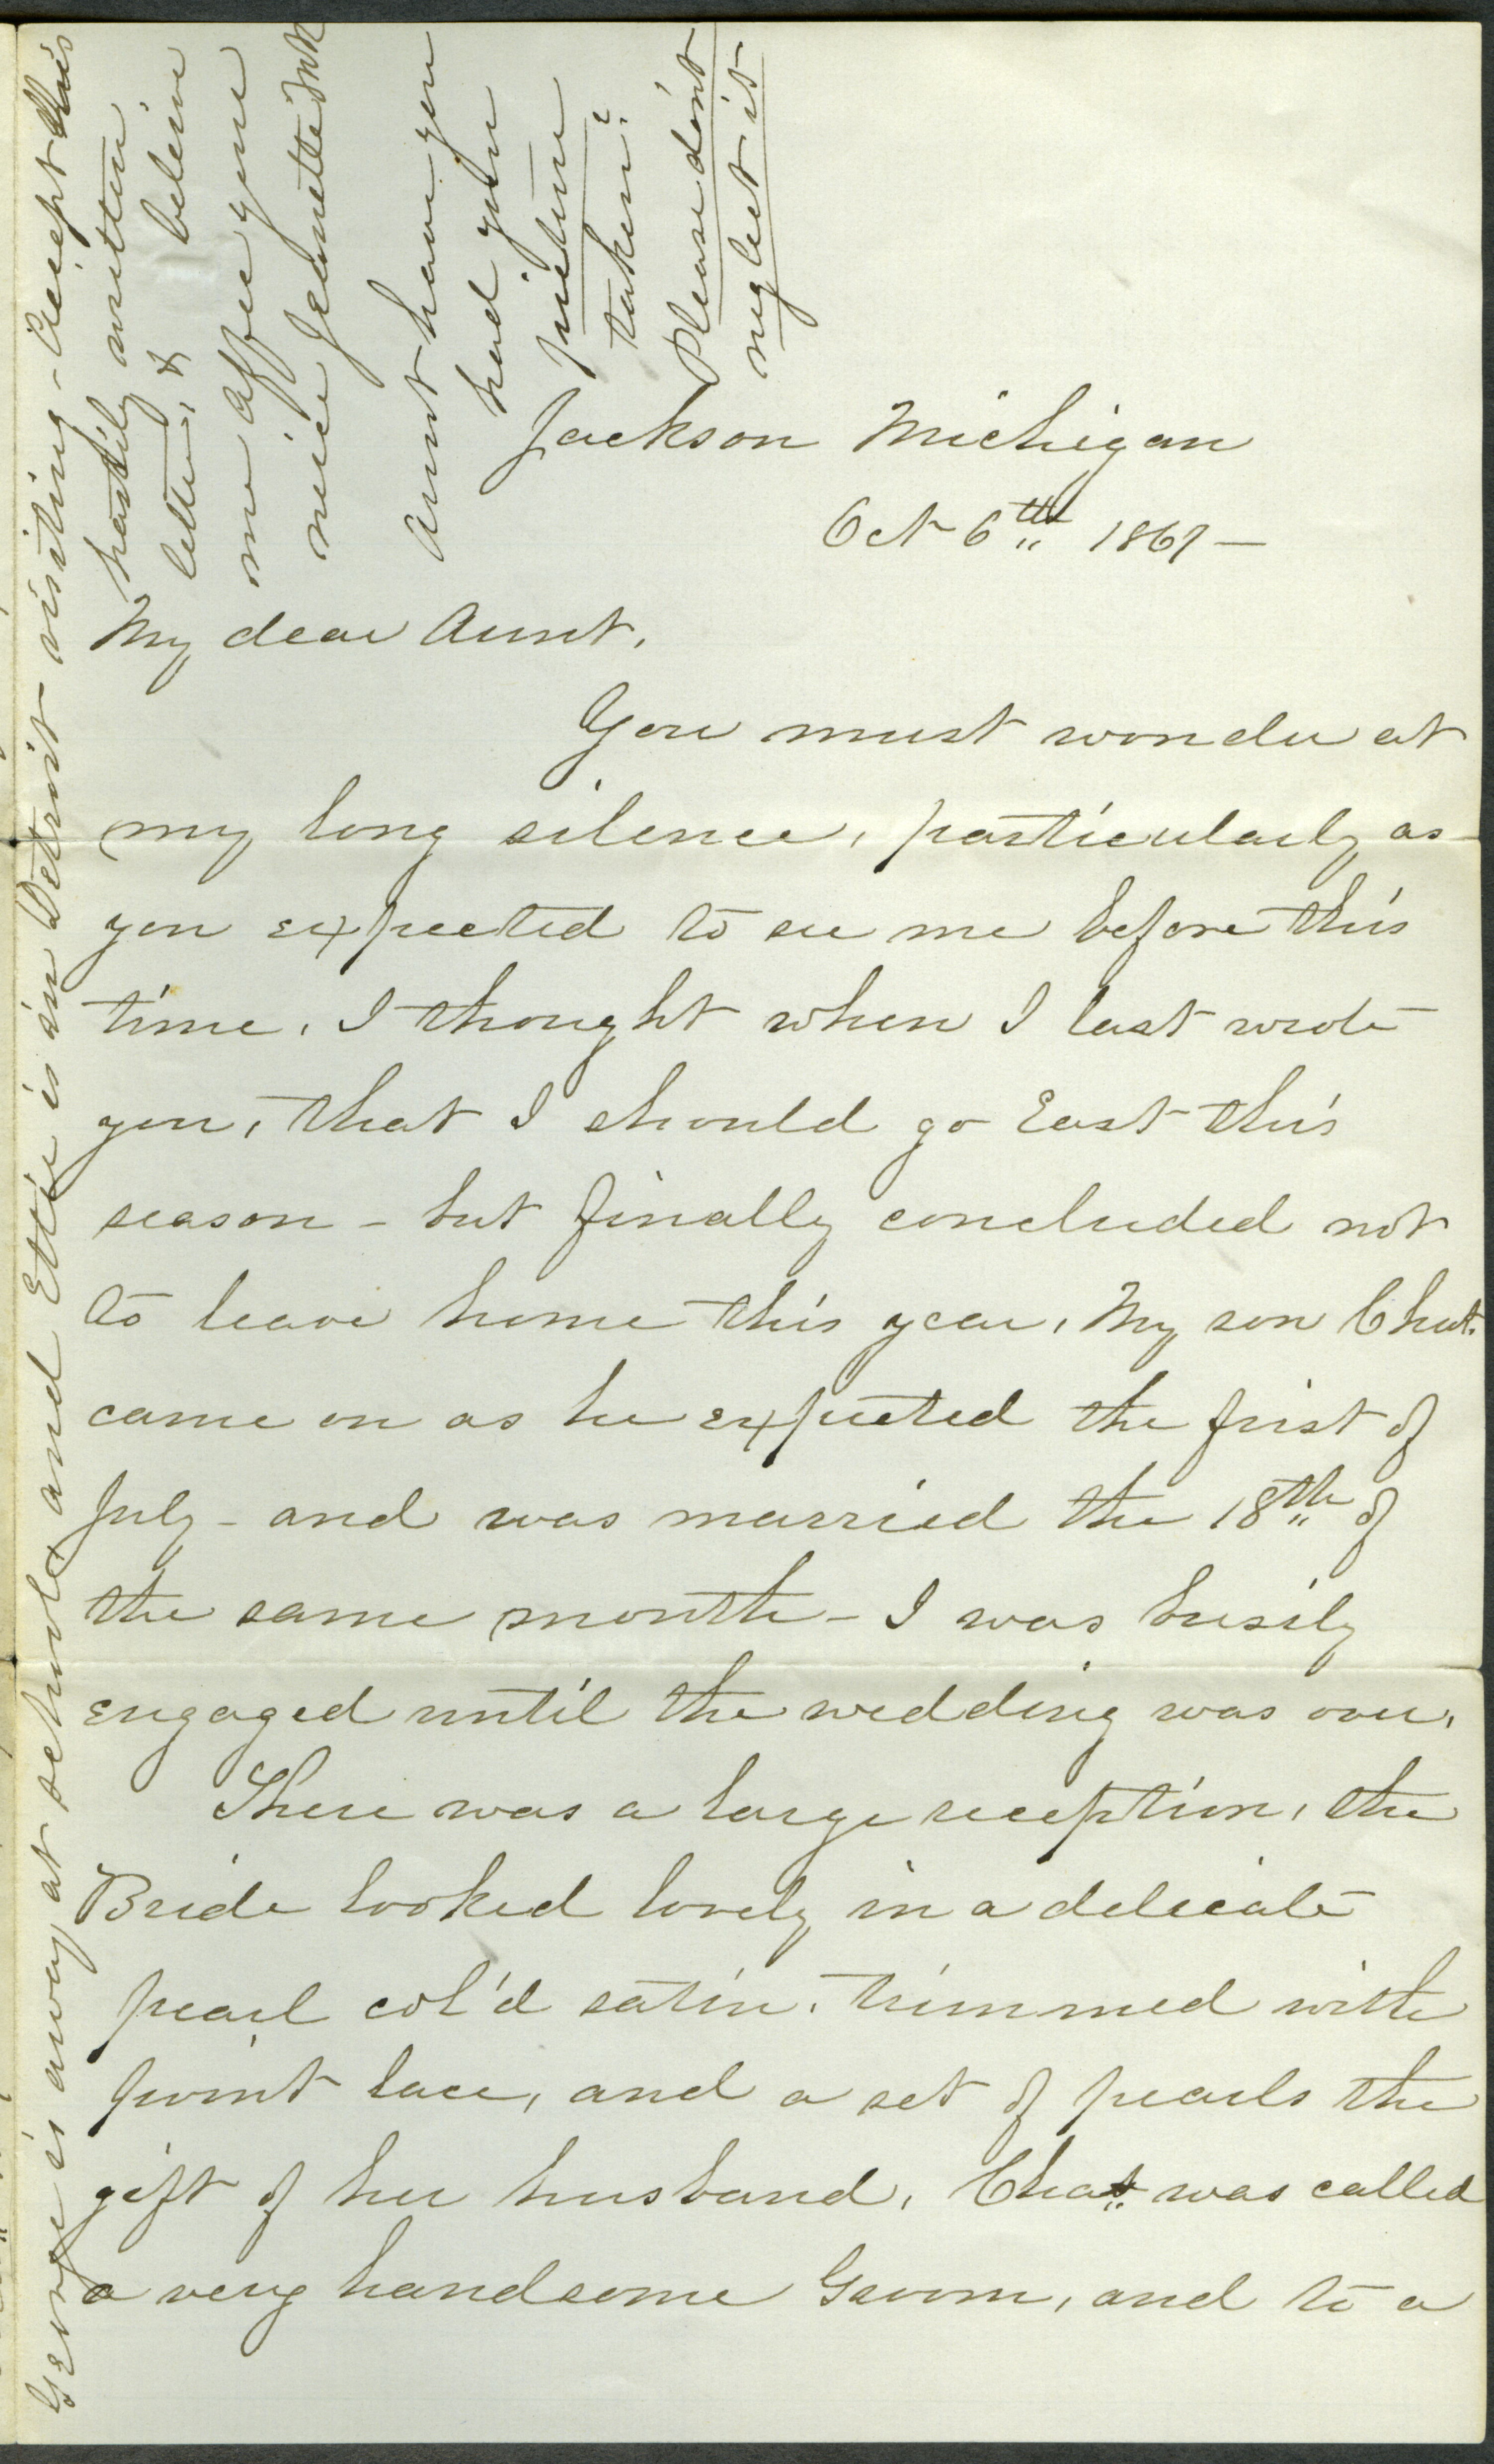 Jackson Michigan
Oct 6th 1867 —
My dear Aunt,
You must wonder at
my long silence, particularly as
you expected to see me before this
time, I thought when I last wrote
you, that I should go East this
season - but finally concluded not
to leave home this year, My son Chat.
came on as he expected the first of
July - and was married the 18th of
the same month - I was busily
engaged until the wedding was over,
There was a large reception, the
Bride looked lovely in a delicate
pearl col'd satin, trimmed with
point lace, and a set of pearls the
gift of her husband, Chat. was called
a very handsome Groom, and to a
George is away at school and Ettie is in Detroit visiting - Accept this
hastily written
letter, & believe
me affec yours
niece Jeanette
Aunt have you
had your
picture
taken?
Please don't
neglect it